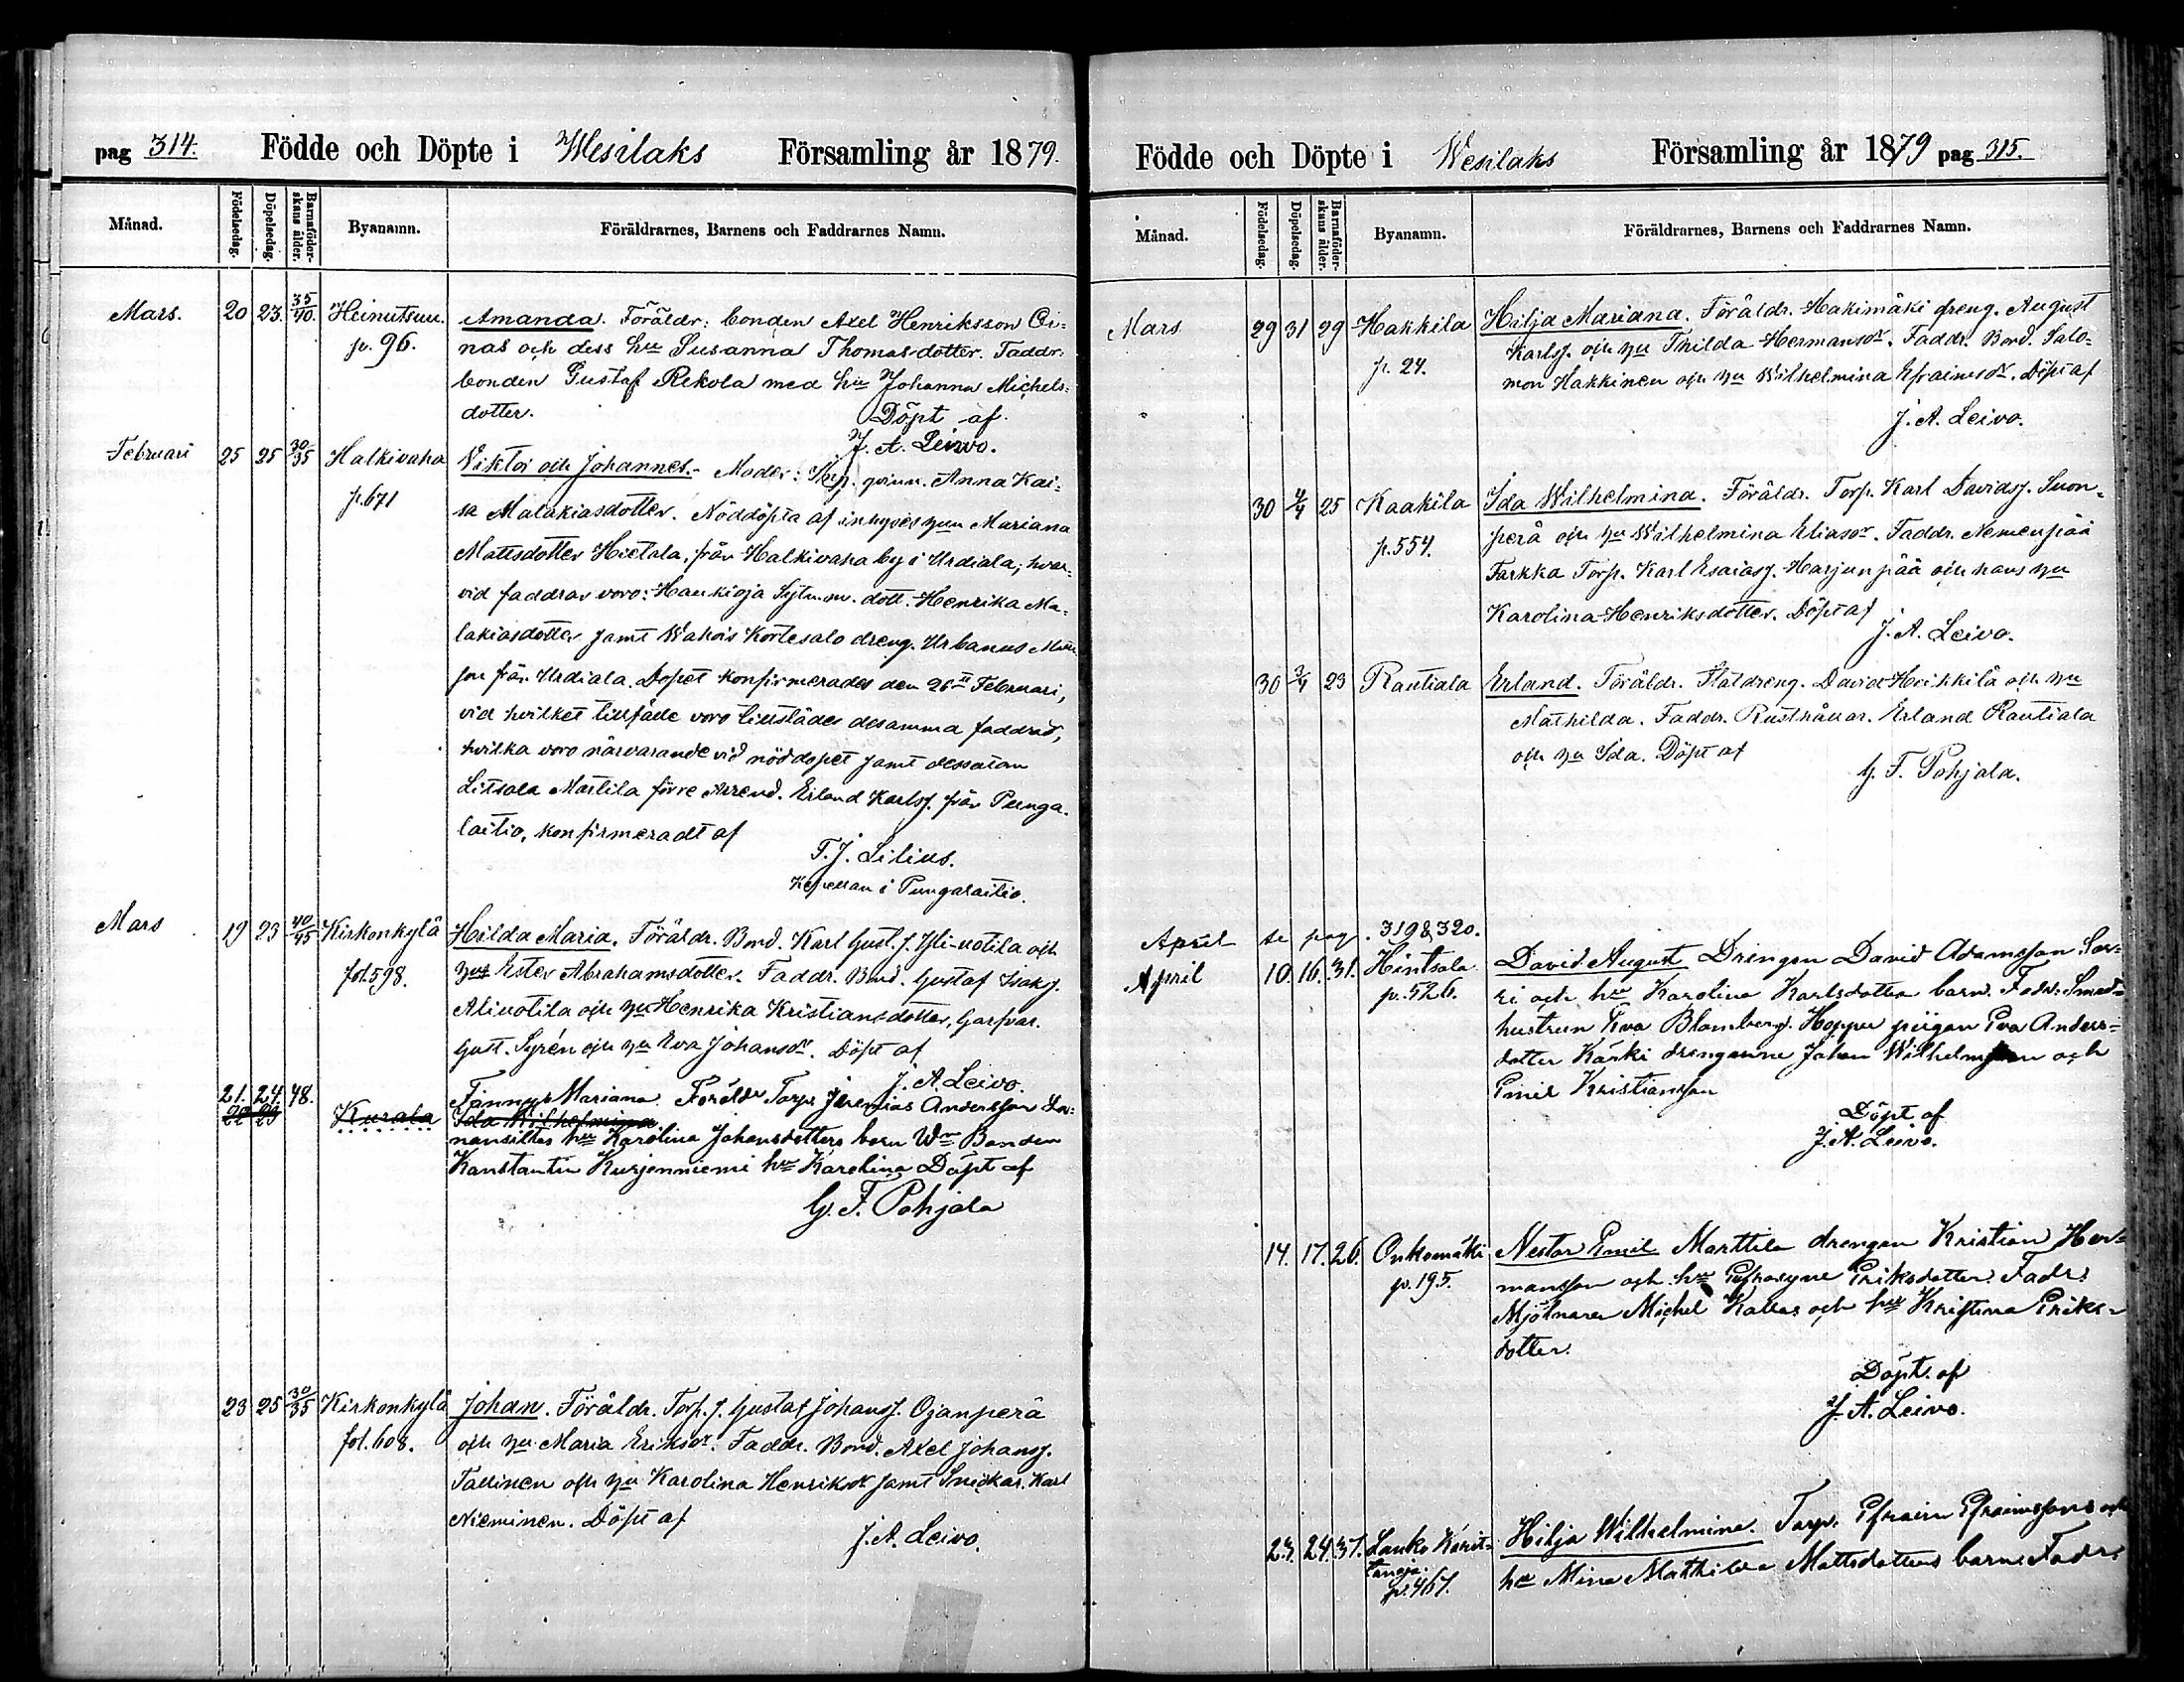 pag 314. Födde och Döpte i Wesilaks Församling år 1879.
Månad. Födelsedag. Döpelsedag. Barnaföder-skans ålder. Byanamn. Föräldrarnes, Barnens och Faddrarnes Namn.
Mars. 20 23. 35/40. Heinutsuu. Amanda. Föräldr: bonden Axel Henriksson Oi-
p. 96. nas och dess hu Susanna Thomas-dotter. Faddr:
bonden Gustaf Rekola med hu Johanna Michels-
dotter. Döpt af
J. A. Leivo.
Februari 25 25 30/35 Halkivaha Viktor och Johannes. Moder: Inh. qvinn. Anna Kai-
p. 671 sa Malakiasdotter. Nöddöpta af inhyses Mariana
Mattsdotter Hietala, från Halkivaha by i Urdiala, hvar-
vid faddrar voro: Haukioja dott. Henrika Ma-
lakiasdotter samt Kortesalo dreng. Urbanus
son från Urdiala. Dopet konfirmerades den 26 Februari,
vid hvilket tillfälle voro tillstädes desamma faddrar,
hvilka voro närvarande vid nöddopet samt dessutom
Litsola Martila förre Arrend. Erland Karlss. från Punga-
laitio, konfirmeradt af
F. J. Lilius.
Kapellan i Pungalaitio.
Mars 19 23 40/45 Kirkonkylä Hilda Maria. Föräldr. Bond. Karl Gust. s. Yli-uotila och
fol. 598. hu Ester Abrahamsdotter. Faddr. Bond. Gustaf Isaks.
Aliuotila och hu Henrika Kristiansdotter, Garfvar.
Gust. Syrén och hu Eva Johansdr. Döpt af
J. A. Leivo.
21. 24. 48. Fanny Mariana. Föräldr Torp. Jeremias Andersson La-
22 23 Kurala Ida Wilhelmina
nansiltas hu Karolina Johansdotters barn Bonden
Konstantin Kurjenniemi hu Karolina Döpt af
G. F. Pohjala
23 25 30/35 Kirkonkylä Johan. Föräldr. Torp. s. Gustaf Johanss. Ojanperä
fol. 608. och hu Maria Eriksdr. Faddr. Bond. Axel Johanss.
Tallinen och hu Karolina Henriksdr samt Snickar. Karl
Nieminen. Döpt af
J. A. Leivo.
Födde och Döpte i Wesilaks Församling år 1879 pag 315.
Månad. Födelsedag. Döpelsedag. Barnaföder-skans ålder. Byanamn. Föräldrarnes, Barnens och Faddrarnes Namn.
Mars 29 31 29 Hakkila Hilja Mariana. Föräldr. Hakimäki dreng. August
p. 24. Karlss. och hu Thilda Hermansdr. Faddr. Bond. Salo-
mon Hakkinen och hu Wilhelmina Efraimsdr. Döpt af
J. A. Leivo.
30 4/4 25 Kaakila Ida Wilhelmina. Föräldr. Torp. Karl Davidss. Suon-
p. 554. perä och hu Wilhelmina Eliasdr. Faddr. Nemenpää
Farkka Torp. Karl Esaiass. Harjunpää och hans hu
Karolina Henriksdotter. Döpt af
J. A. Leivo.
30 3/4 23 Rautiala Erland. Föräldr. Statdreng. David Heikkilä och hu
Mathilda. Faddr. Rusthållar. Erland Rautiala
och hu Ida. Döpt af
G. F. Pohjala.
April se pag. 319 & 320.
April 10. 16. 31. Hintsala David August Drengen David Adamsson Sor-
p. 526. ri och hu Karolina Karlsdotter barn. Fadr. Smed-
hustrun Eva Blomberg. Hoppu pigan Eva Anders-
dotter Kärki drengarne Johan Wilhelmsson och
Emil Kristiansson
Döpt af
J. A. Leivo.
14. 17. 26. Onkemäki Nestor Emil Marttila drengen Kristian Her-
p. 195. mansson och hu Eufrosyne Eriksdotter. Fadr:
Mjölnaren Michel Kallas och hu Kristina Eriks-
dotter.
Döpt. af
J. A. Leivo.
23. 24. 37. Lauko Hilja Wilhelmina. Torp. Efraim Efraimssons och
p. 467. hu Mina Mathilda Mattsdotters barn. Fadr: